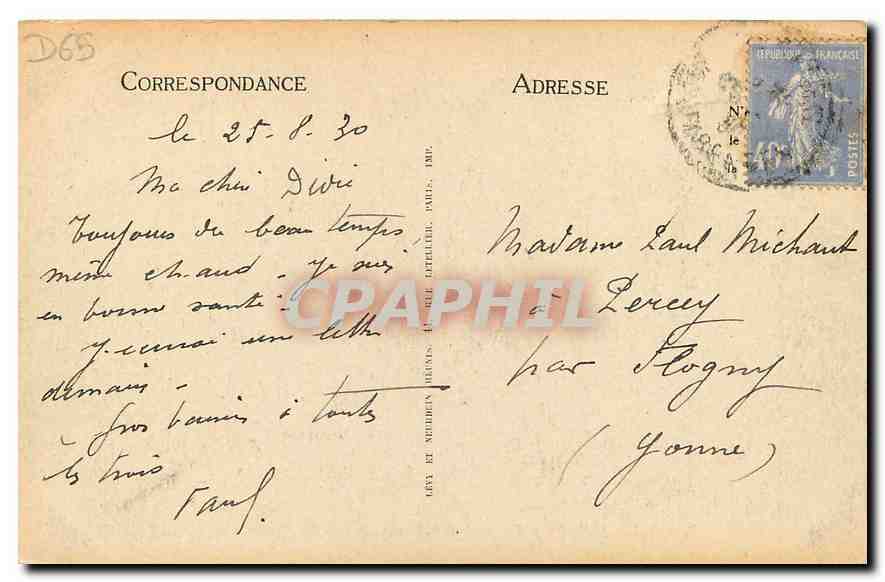 D65
CORRESPONDANCE
le 25-8-30
Ma chère Didie
Toujours du beau temps,
même chaud - Je suis
en bonne santé.
une lettre
demain -
Gros baisers à toutes
les trois
Paul.
LÉVY ET NEURDEIN RÉUNIS, RUE LETELLIER, PARIS, IMP.
ADRESSE
RÉPUBLIQUE FRANÇAISE
40c
POSTES
le
la
Madame Paul Michaut
à Percey
par Flogny
(Yonne)
CPAPHIL